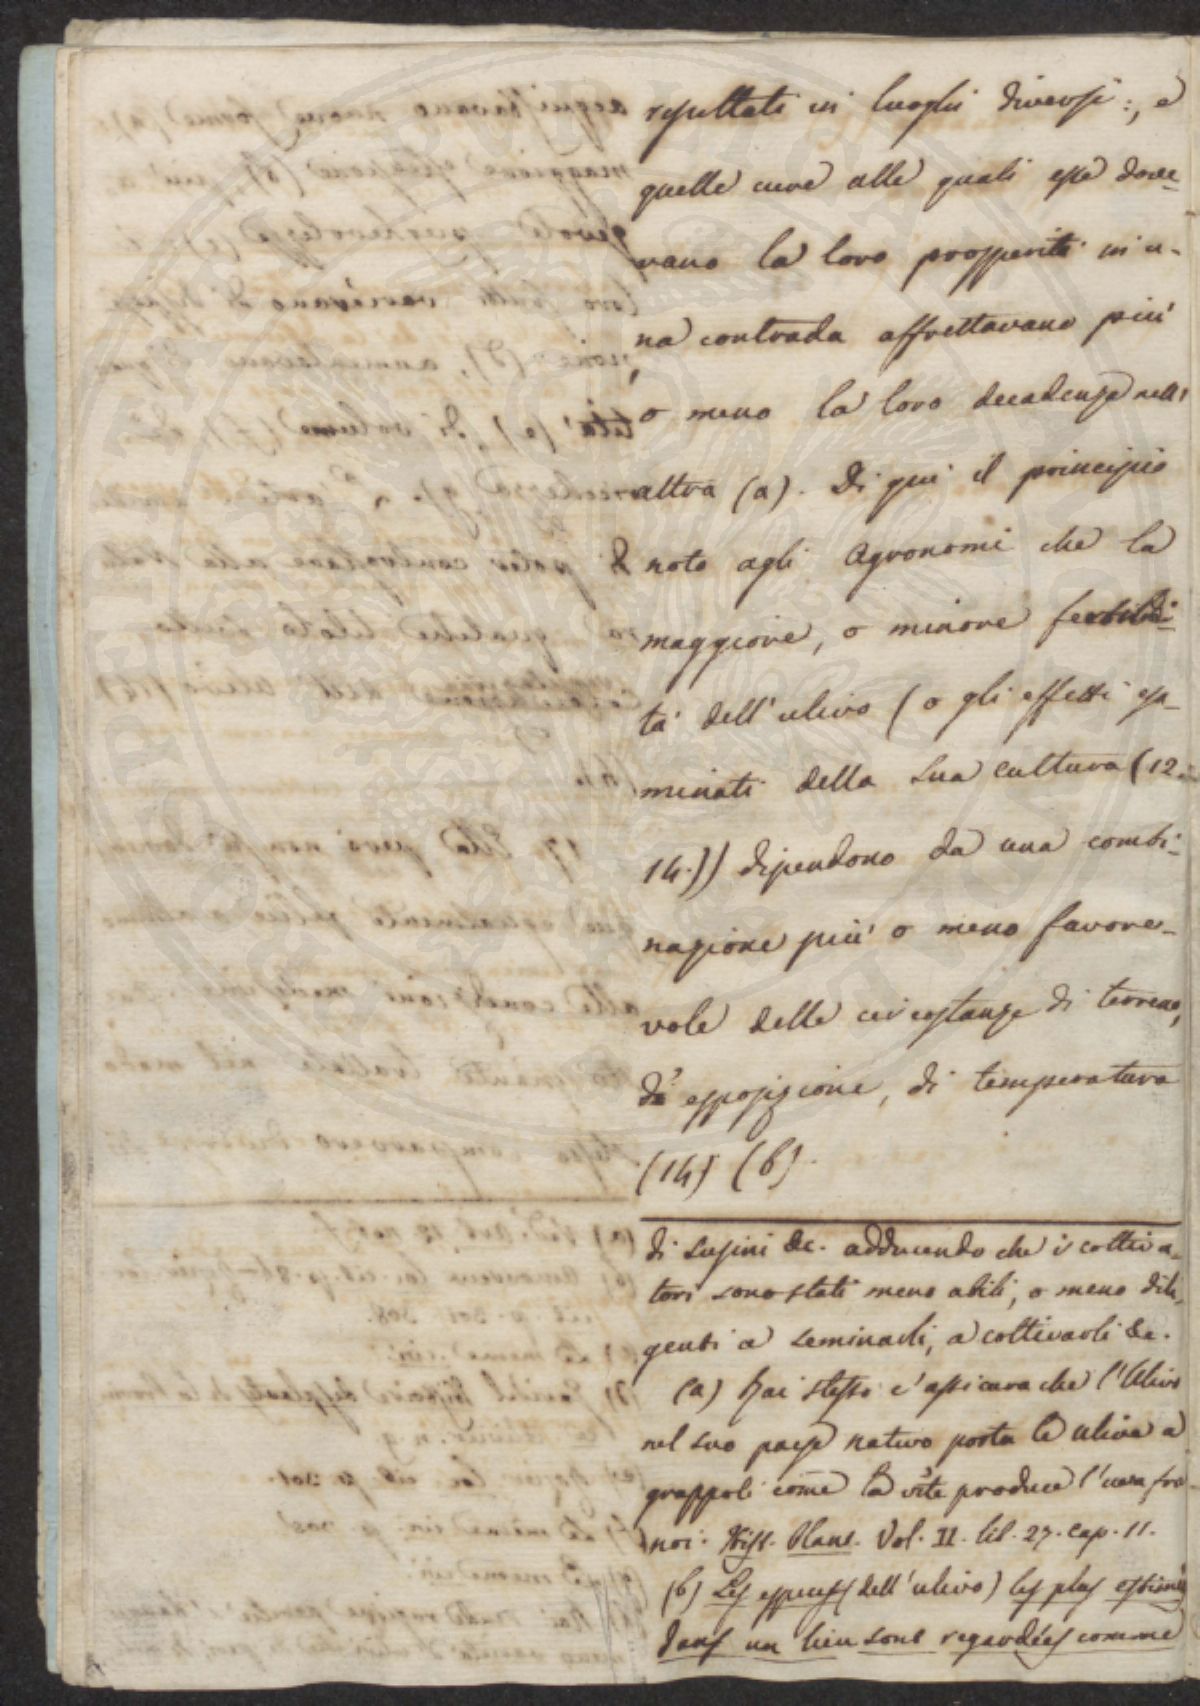 resultati in luoghi diversi:, e
quelle cure alle quali esse dove-
vano la loro prosperità in u-
na contrada affrettavano più
o meno la loro decadenza nell'
altra (a). Di qui il principio
noto agli Agronomi che la
maggiore, o minore fertili-
tà dell'ulivo (o gli effetti esa-
minati della sua cultura (12.
14.)) dipendono da una combi-
nazione più o meno favore-
vole delle circostanze di terreno,
di esposizione, di temperatura
(14) (b).
di Lupini &c. adducendo che i coltiva-
tori sono stati meno abili, o meno dili-
genti a seminarli, a coltivarli &c.
(a) Rai stesso c'assicura che l'Ulivo
nel suo paese nativo porta le ulive a
grappoli come la vite produce l'uva fra
noi: Hist. Plant. Vol. II. lib. 27. cap. 11.
(b) Les especes (dell'ulivo) les plus estimées
dans un lieu sont regardées comme